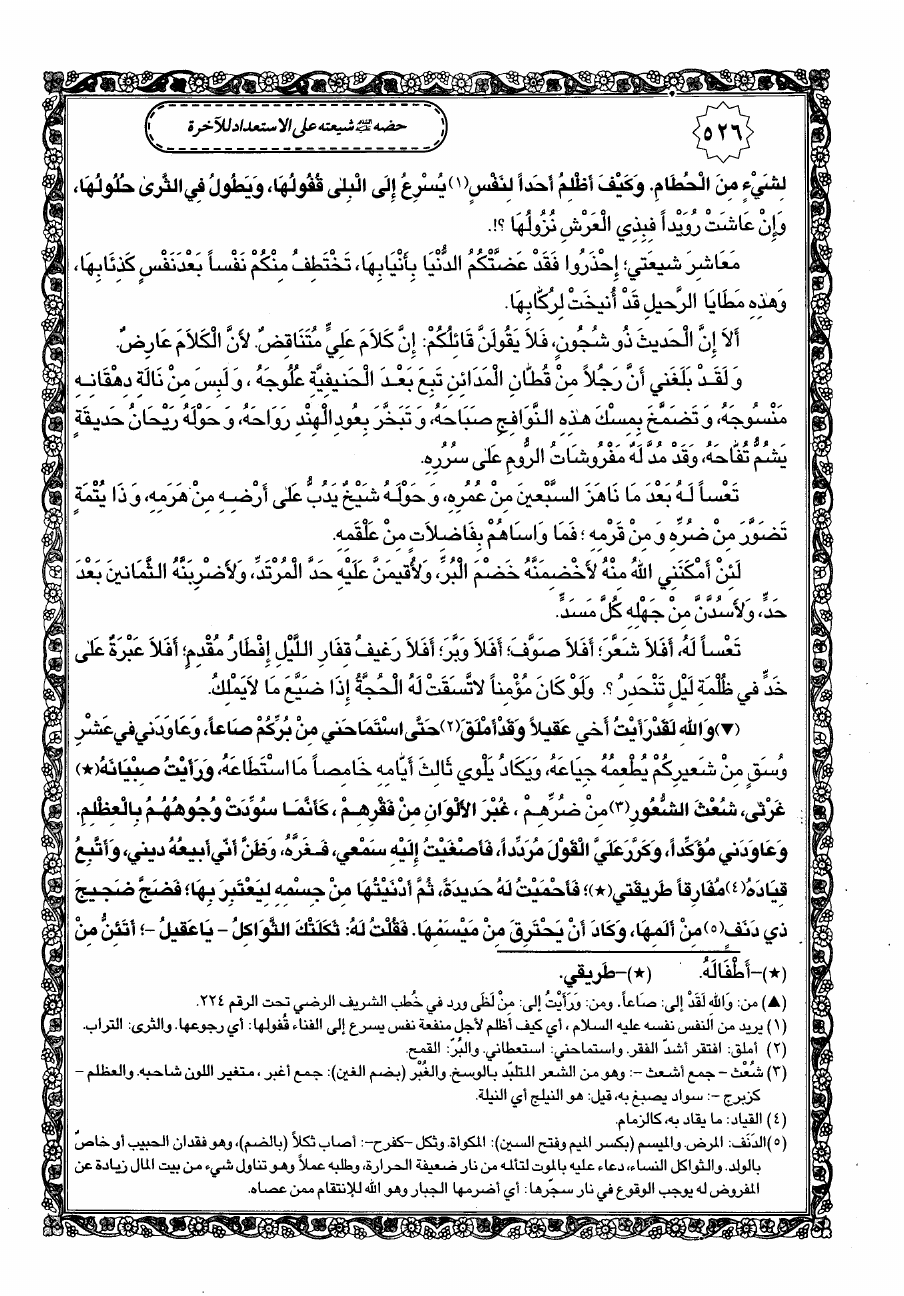 ٥٢٦
حضه عليه السلام شيعته على الاستعداد للآخرة
لِشَيْءٍ مِنَ الْحُطَامِ. وَكَيْفَ أَظْلِمُ أَحَداً لِنَفْسٍ(١) يُسْرِعُ إِلَى الْبِلىٰ قُفُولُهَا، وَيَطُولُ فِي الثَّرىٰ حُلُولُهَا،
وَإِنْ عَاشَتْ رُوَيْداً فَبِذِي الْعَرْشِ نُزُولُهَا ؟!.
مَعَاشِرَ شيعَتي؛ إِحْذَرُوا فَقَدْ عَضَّتْكُمُ الدُّنْيَا بِأَنْيَابِهَا، تَخْتَطِفُ مِنْكُمْ نَفْساً بَعْدَ نَفْسٍ كَذِئَابِهَا،
وَهٰذِهِ مَطَايَا الرَّحيلِ قَدْ أُنيخَتْ لِرُكَّابِهَا.
أَلاَ إِنَّ الْحَديثَ ذُو شُجُونٍ، فَلاَ يَقُولَنَّ قَائِلُكُمْ: إِنَّ كَلاَمَ عَلِيٍّ مُتَنَاقِضٌ. لأَنَّ الْكَلاَمَ عَارِضٌ.
وَلَقَدْ بَلَغَني أَنَّ رَجُلاً مِنْ قُطَّانِ الْمَدَائِنِ تَبِعَ بَعْدَ الْحَنيفِيَّةِ عُلُوجَهُ ، وَلَبِسَ مِنْ نَالَةِ دِهْقَانِهِ
مَنْسُوجَهُ، وَتَضَمَّخَ بِمِسْكِ هٰذِهِ النَّوَافِجِ صَبَاحَهُ، وَتَبَخَّرَ بِعُودِ الْهِنْدِ رَوَاحَهُ، وَحَوْلَهُ رَيْحَانُ حَديقَةٍ
يَشُمُّ تُفَّاحَهُ، وَقَدْ مُدَّ لَهُ مَفْرُوشَاتُ الرُّومِ عَلىٰ سُرُرِهِ.
تَعْساً لَهُ بَعْدَ مَا نَاهَزَ السَّبْعينَ مِنْ عُمُرِهِ، وَحَوْلَهُ شَيْخٌ يَدُبُّ عَلىٰ أَرْضِهِ مِنْ هَرَمِهِ، وَذَا يُتْمَةٍ
تَضَوَّرَ مِنْ ضُرِّهِ وَمِنْ قَرْمِهِ ؛ فَمَا وَاسَاهُمْ بِفَاضِلاَتٍ مِنْ عَلْقَمِهِ.
لَئِنْ أَمْكَنَنِي اللهُ مِنْهُ لأَخْضِمَنَّهُ خَضْمَ الْبُرِّ، وَلأُقيمَنَّ عَلَيْهِ حَدَّ الْمُرْتَدِّ، وَلأَضْرِبَنَّهُ الثَّمَانينَ بَعْدَ
حَدٍّ، وَلأَسُدَّنَّ مِنْ جَهْلِهِ كُلَّ مَسَدٍّ.
تَعْساً لَهُ، أَفَلاَ شَعَّرَ؛ أَفَلاَ صَوَّفَ؛ أَفَلاَ وَبَّرَ؛ أَفَلاَ رَغيفُ قِفَارِ اللَّيْلِ إِفْطَارُ مُقْدِمٍ؛ أَفَلاَ عَبْرَةٌ عَلىٰ
خَدٍّ في ظُلْمَةِ لَيْلٍ تَنْحَدِرُ ؟. وَلَوْ كَانَ مُؤْمِناً لاتَّسَقَتْ لَهُ الْحُجَّةُ إِذَا ضَيَّعَ مَا لاَيَمْلِكُ.
(▼) وَاللهِ لَقَدْ رَأَيْتُ أَخي عَقيلاً وَقَدْ أَمْلَقَ(٢) حَتَّى اسْتَمَاحَني مِنْ بُرِّكُمْ صَاعاً، وَعَاوَدَني في عَشْرِ
وُسَقٍ مِنْ شَعيرِكُمْ يُطْعِمُهُ جِيَاعَهُ، وَيَكَادُ يَلْوي ثَالِثَ أَيَّامِهِ خَامِصاً مَا اسْتَطَاعَهُ، وَرَأَيْتُ صِبْيَانَهُ(★)
غَرْثىٰ، شُعْثَ الشُّعُورِ(٣) مِنْ ضُرِّهِمْ ، غُبْرَ الأَلْوَانِ مِنْ فَقْرِهِمْ ، كَأَنَّمَا سُوِّدَتْ وُجُوهُهُمْ بِالْعِظْلِمِ.
وَعَاوَدَني مُؤَكِّداً، وَكَرَّرَ عَلَيَّ الْقَوْلَ مُرَدِّداً، فَأَصْغَيْتُ إِلَيْهِ سَمْعي، فَغَرَّهُ، وَظَنَّ أَنّي أَبيعُهُ ديني، وَأَتَّبِعُ
قِيَادَهُ(٤) مُفَارِقاً طَريقَتي(★)؛ فَأَحْمَيْتُ لَهُ حَديدَةً، ثُمَّ أَدْنَيْتُهَا مِنْ جِسْمِهِ لِيَعْتَبِرَ بِهَا؛ فَضَجَّ ضَجيجَ
ذي دَنَفٍ(٥) مِنْ أَلَمِهَا، وَكَادَ أَنْ يَحْتَرِقَ مِنْ مَيْسَمِهَا. فَقُلْتُ لَهُ: ثَكَلَتْكَ الثَّوَاكِلُ - يَا عَقيلُ -؛ أَتَئِنُّ مِنْ
(★)-أَطْفَالَهُ. (★)-طَريقي.
(▲) من: وَاللهِ لَقَدْ إلى: صَاعاً. ومن: وَرَأَيْتُ إلى: مِنْ لَظَى ورد في خُطب الشريف الرضي تحت الرقم ٢٢٤.
(١) يريد من النفس نفسه عليه السلام ، أي كيف أظلم لأجل منفعة نفس يسرع إلى الفناء قُفولها: أي رجوعها. والثرى: التراب.
(٢) أملق: افتقر أشدّ الفقر. واستماحني: استعطاني. والبُرّ: القمح.
(٣) شُعْث - جمع أشعث -: وهو من الشعر المتلبّد بالوسخ. والغُبْر (بضم الغين): جمع أغبر ، متغير اللون شاحبه. والعظلم -
كزبرج -: سواد يصبغ به، قيل: هو النيلج أي النيلة.
(٤) القياد: ما يقاد به، كالزمام.
(٥) الدَنَف: المرض. والميسم (بكسر الميم وفتح السين): المكواة. وثكل -كفرح-: أصاب ثكلاً (بالضم)، وهو فقدان الحبيب أو خاصّ
بالولد. والثواكل النساء، دعاء عليه بالموت لتألمه من نار ضعيفة الحرارة، وطلبه عملاً وهو تناول شيء من بيت المال زيادة عن
المفروض له يوجب الوقوع في نار سجّرها: أي أضرمها الجبار وهو الله للإنتقام ممن عصاه.